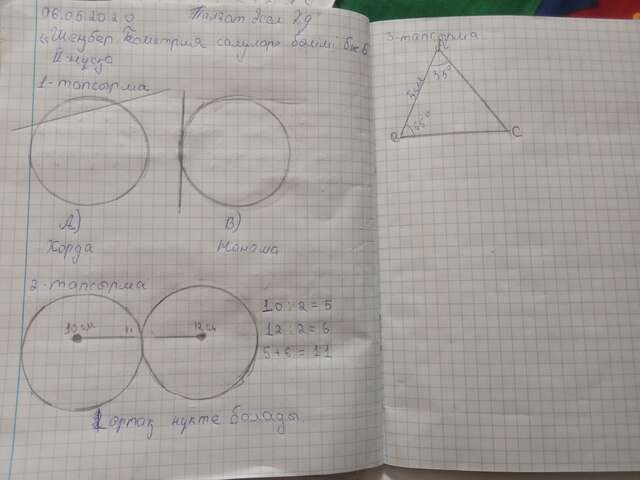 06.05.2020
Талғат Әсел 7д
"Шеңбер. Геометрия салулар" бөлімі бжБ
II-нұсқа
1-тапсырма
А)
В)
Хорда
Жанама
2-тапсырма
10 см
12 см
10:2=5
12:2=6
5+6=11
1 ортақ нүкте болады.
3-тапсырма
35°
5см
55°
В
С